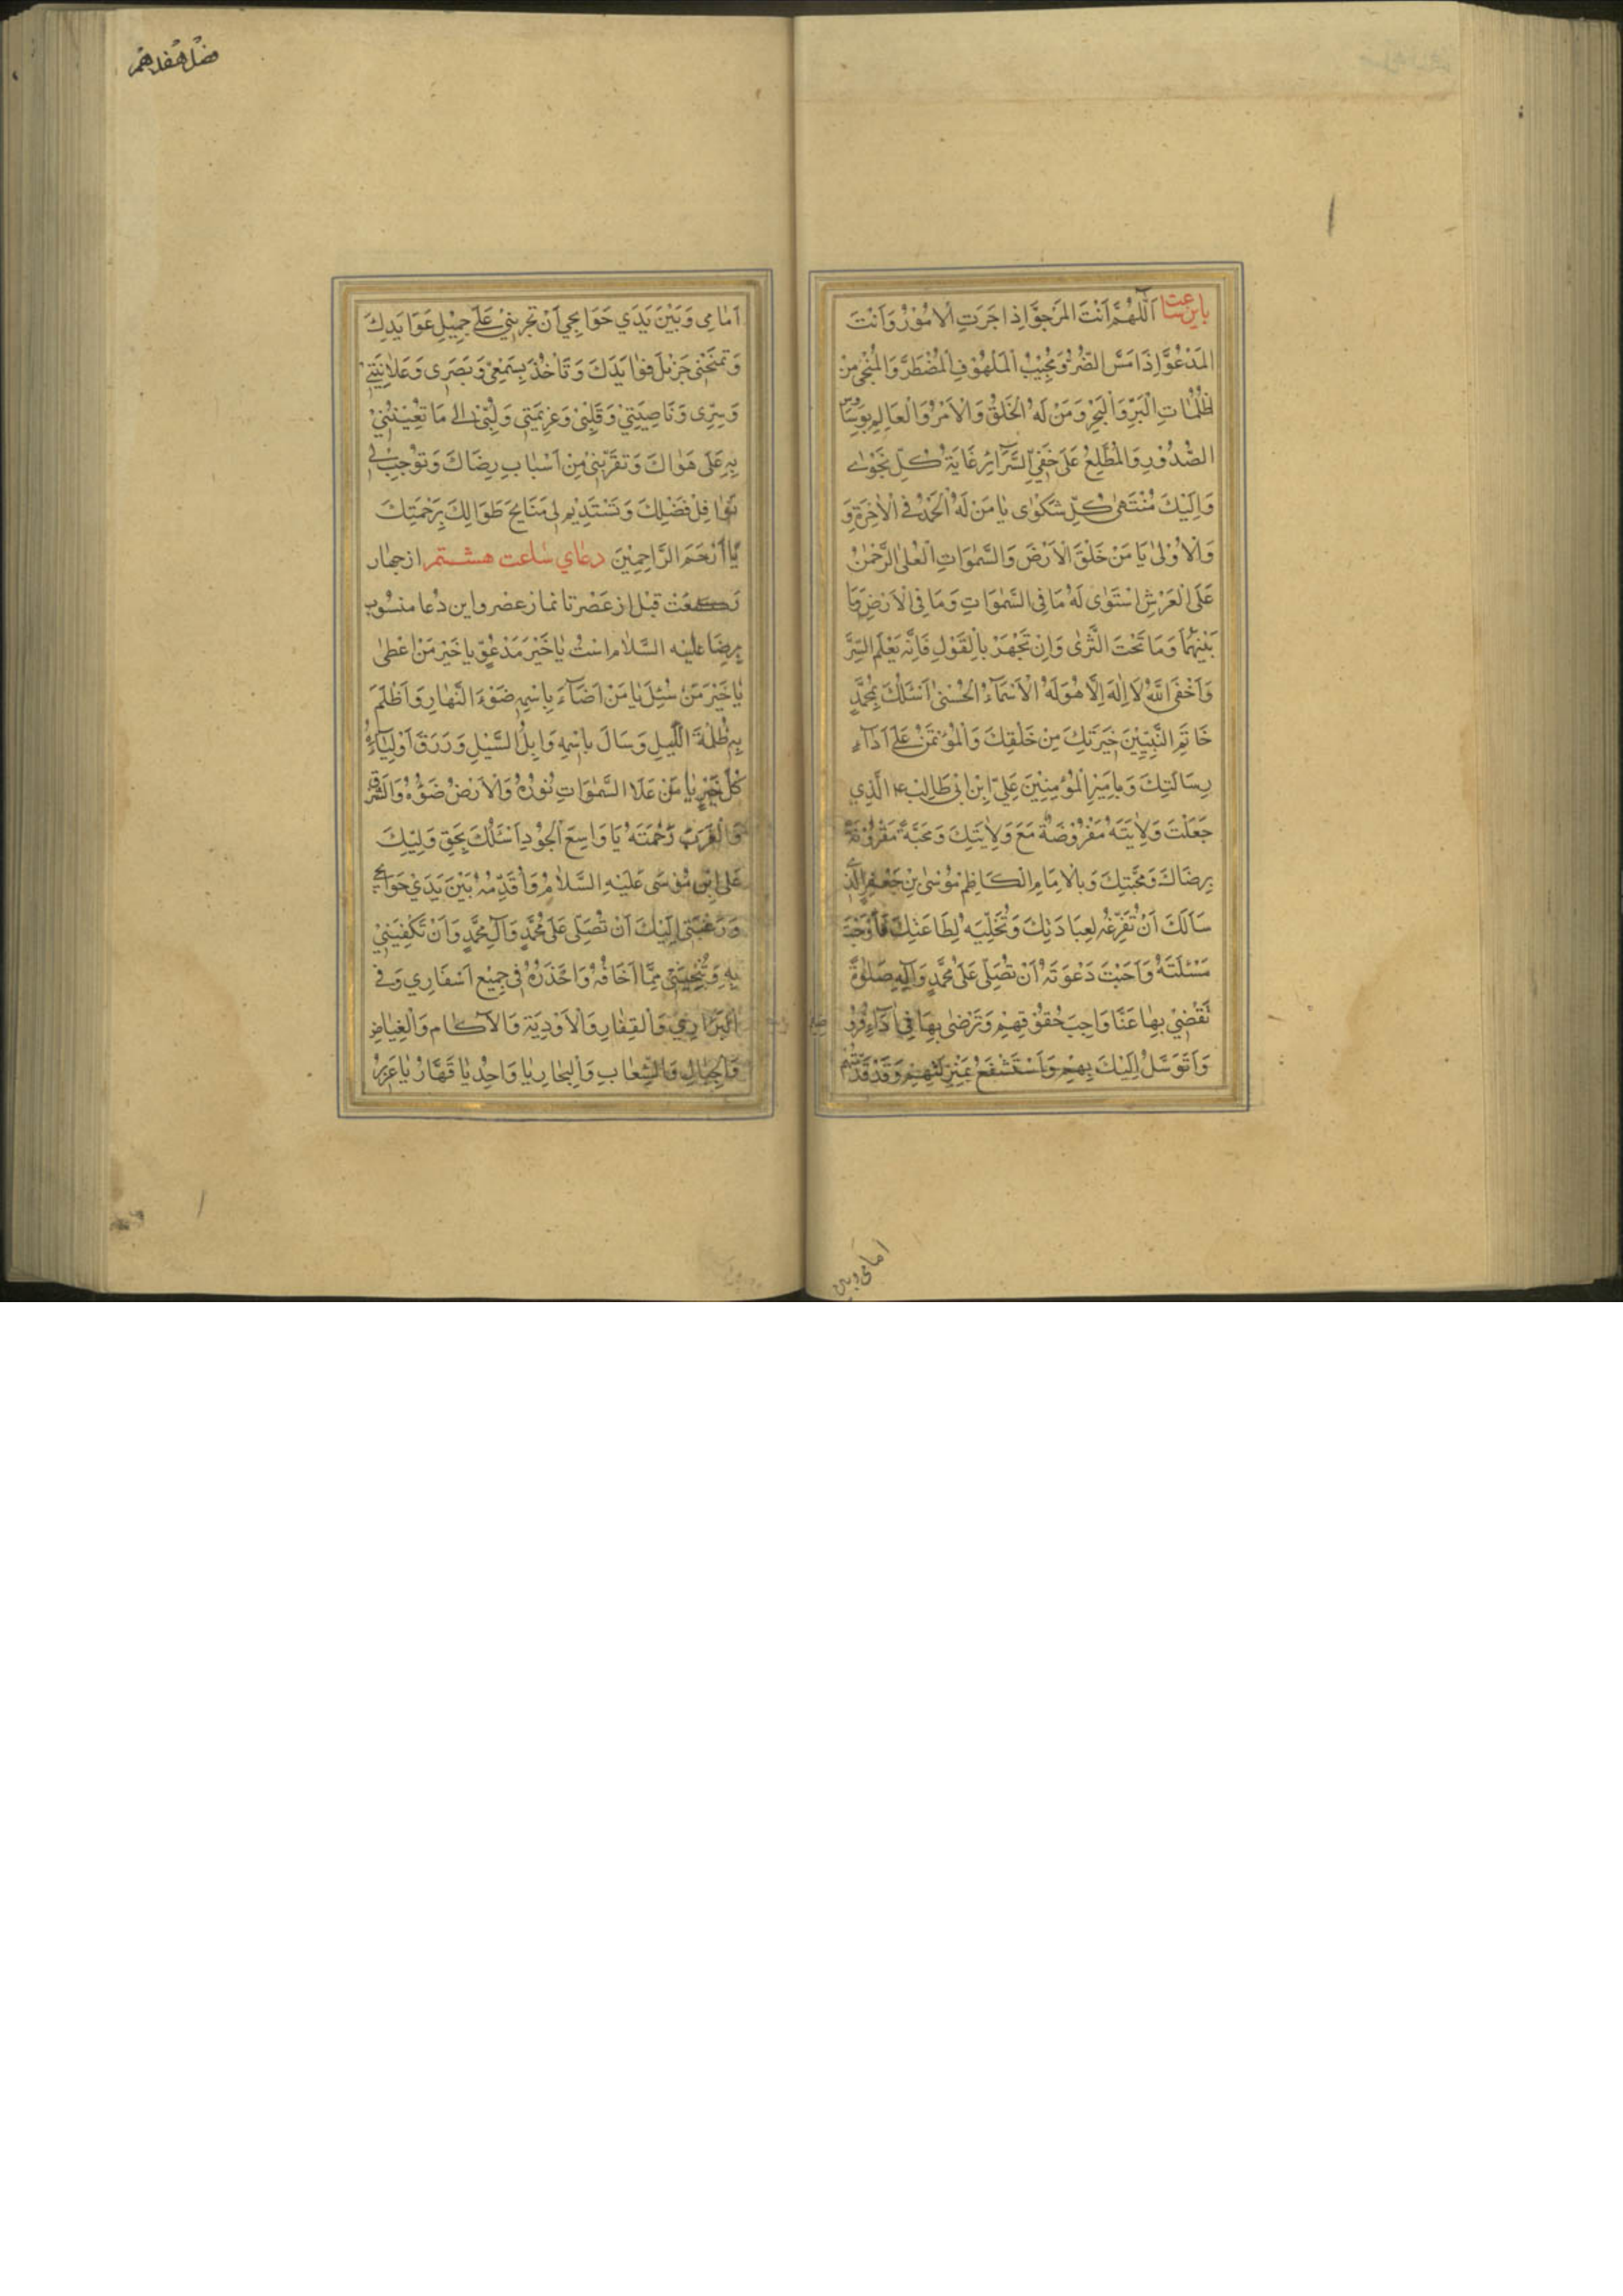 باین ساعت اَللّٰهُمَّ اَنْتَ الْمَرْجُوُّ اِذَا حَزَتِ الْاُمُوْرُ وَاَنْتَ
الْمَدْعُوُّ اِذَا مَسَّ الضُّرُّ وَمُجِیْبُ الْمَلْهُوْفِ الْمُضْطَرِّ وَالْمُنْجِیْ مِنْ
ظُلُمَاتِ الْبَرِّ وَالْبَحْرِ وَمَنْ لَهُ الْخَلْقُ وَالْاَمْرُ وَالْعَالِمِ بِوَسَاوِسِ
الصُّدُوْرِ وَالْمُطَّلِعُ عَلَی خَفِیِّ السَّرَآئِرِ غَایَةُ كُلِّ نَجْوٰی
وَاِلَیْكَ مُنْتَهٰی كُلِّ شَكْوٰی یَا مَنْ لَهُ الْحَمْدُ فِی الْاٰخِرَةِ وَ
وَالْاُوْلٰی یَا مَنْ خَلَقَ الْاَرْضَ وَالسَّمٰوَاتِ الْعُلٰی الرَّحْمٰنُ
عَلَی الْعَرْشِ اسْتَوٰی لَهُ مَا فِی السَّمٰوَاتِ وَمَا فِی الْاَرْضِ وَمَا
بَیْنَهُمَا وَمَا تَحْتَ الثَّرٰی وَاِنْ تَجْهَرْ بِالْقَوْلِ فَاِنَّهُ یَعْلَمُ السِّرَّ
وَاَخْفٰی اَللّٰهُ لَا اِلٰهَ اِلَّا هُوَ لَهُ الْاَسْمَآءُ الْحُسْنٰی اَسْئَلُكَ بِمُحَمَّدٍ
خَاتَمِ النَّبِیِّیْنَ خِیَرَتِكَ مِنْ خَلْقِكَ وَالْمُؤْتَمَنْ عَلٰی اَدَآءِ
رِسَالَتِكَ وَبِاَمِیْرِ الْمُؤْمِنِیْنَ عَلِیِّ ابْنِ اَبِیْ طَالِبٍ ع الَّذِی
جَعَلْتَ وَلَایَتَهُ مَفْرُوْضَةً مَعَ وَلَایَتِكَ وَمَحَبَّةً مَقْرُوْنَةً
بِرِضَاكَ وَمَحَبَّتِكَ وَبِالْاِمَامِ الْكَاظِمِ مُوْسٰی بْنِ جَعْفَرٍ الَّذِی
سَاَلَكَ اَنْ تُفَرِّغَهُ لِعِبَادَتِكَ وَتُخَلِّیَهُ لِطَاعَتِكَ فَاَوْجَبْتَ
مَسْئَلَتَهُ وَاَجَبْتَ دَعْوَتَهُ اَنْ تُصَلِّیَ عَلٰی مُحَمَّدٍ وَآلِهِ صَلٰوةً
تَقْضِیْ بِهَا عَنَّا وَاجِبَ حُقُوْقِهِمْ وَتَرْضٰی بِهَا فِیْ اَدَآءِ فُرُوْ
وَاَتَوَسَّلُ اِلَیْكَ بِهِمْ وَاَسْتَشْفِعُ بِمَنْزِلَتِهِمْ وَقَدْ قَدَّمْتُهُمْ
امامی وبین
فصل هفدهم
اَمَامِی وَبَیْنَ یَدَی حَوَایِجِی اَنْ تُجْرِیَنِیْ عَلٰی جَمِیْلِ عَوَایِدِكَ
وَتَمْنَحَنِی جَزِیْلَ فَوَایِدِكَ وَتَاْخُذَ بِسَمْعِیْ وَبَصَرِی وَعَلَانِیَتِیْ
وَسِرِّی وَنَاصِیَتِیْ وَقَلْبِیْ وَعَزِیْمَتِی وَلُبِّیْ اِلٰی مَا تُعِیْنُنِیْ
بِهِ عَلٰی هَوَاكَ وَتُقَرِّبَنِیْ مِنْ اَسْبَابِ رِضَاكَ وَتُوْجِبَ لِی
نَوَافِلَ فَضْلِكَ وَتَسْتَدِیْمَ لِی مَنَایِحَ طَوْلِكَ بِرَحْمَتِكَ
یَا اَرْحَمَ الرَّاحِمِیْنَ دعای ساعت هشتم از چهار
ركعت قبل از عصر تا نماز عصر و این دعا منسوب
برضا علیه السلام است یَا خَیْرَ مَدْعُوٍّ یَا خَیْرَ مَنْ اَعْطٰی
یَا خَیْرَ مَنْ سُئِلَ یَا مَنْ اَضَآءَ بِاسْمِهِ ضَوْءُ النَّهَارِ وَاَظْلَمَ
بِهِ ظُلْمَةُ اللَّیْلِ وَسَالَ بِاسْمِهِ وَابِلُ السَّیْلِ وَرَزَقَ اَوْلِیَاءَهُ
كُلَّ خَیْرٍ یَا مَنْ عَلَا السَّمٰوَاتِ نُوْرُهُ وَالْاَرْضَ ضَوْءُهُ وَالشَّرْقَ
وَالْغَرْبَ رَحْمَتُهُ یَا وَاسِعَ الْجُوْدِ اَسْئَلُكَ بِحَقِّ وَلِیِّكَ
عَلِیِّ ابْنِ مُوْسٰی عَلَیْهِ السَّلَامُ وَاُقَدِّمُهُ بَیْنَ یَدَیْ حَوَایِجِی
وَرَغْبَتِی اِلَیْكَ اَنْ تُصَلِّیَ عَلٰی مُحَمَّدٍ وَآلِ مُحَمَّدٍ وَاَنْ تَكْفِیَنِیْ
بِهِ وَتُنْجِیَنِیْ مِمَّا اَخَافُهُ وَاَحْذَرُهُ فِی جَمِیْعِ اَسْفَارِی وَفِی
الْبَرَارِیْ وَالْقِفَارِ وَالْاَوْدِیَةِ وَالْآكَامِ وَالْغِیَاضِ
وَالْجِبَالِ وَالشِّعَابِ وَالْبِحَارِ یَا وَاحِدُ یَا قَهَّارُ یَا عَزِیْزُ